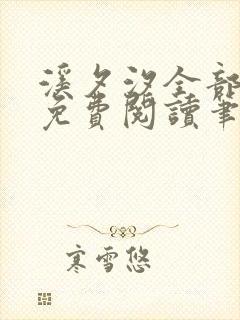 溪夕汐全部
免費閱讀筆
寒雪悠